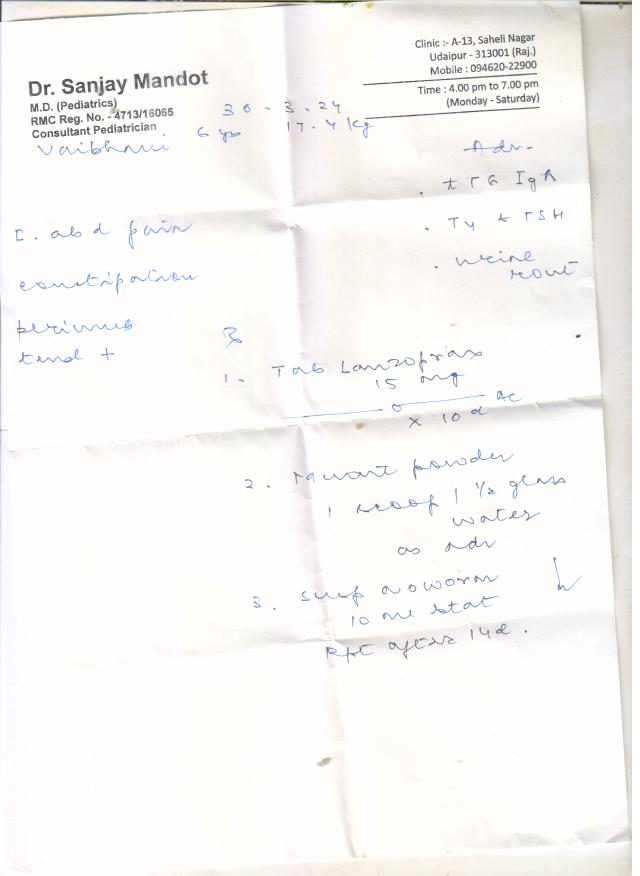 Dr. Sanjay Mandot
M.D. (Pediatrics)
RMC Reg. No. - 4713/16065
Consultant Pediatrician
Clinic :- A-13, Saheli Nagar
Udaipur - 313001 (Raj.)
Mobile : 094620-22900
Time : 4.00 pm to 7.00 pm
(Monday - Saturday)
30-3-24
6 yrs 17.4 kg
Adv-
. tTG IgA
. T4 & TSH
. urine
rout
abd pain
constipation
tend +
Rx
1. Tab Lanzoprax
15 mg
x 10 d AC
2. powder
1 scoop 1 1/2 glass
water
as adv
3. Syrup noworm
10 ml stat
Rpt after 14 d.